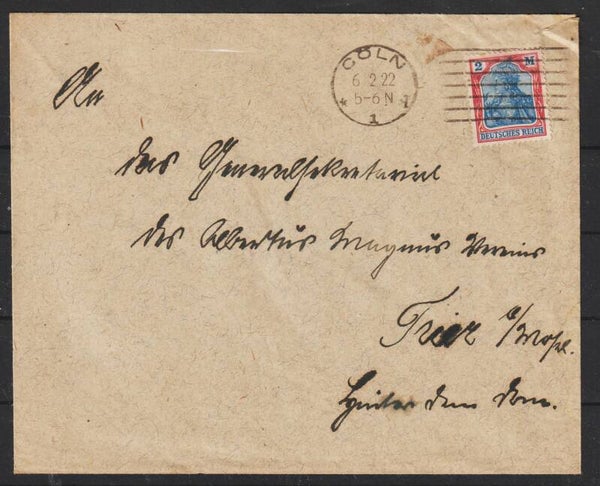 CÖLN
6 2 22
5-6 N
* 1 *
1
2 M
DEUTSCHES REICH
An
das Generalsekretariat
des Albertus Magnus Vereins
Trier a/Mosel.
Hinter dem Dom.